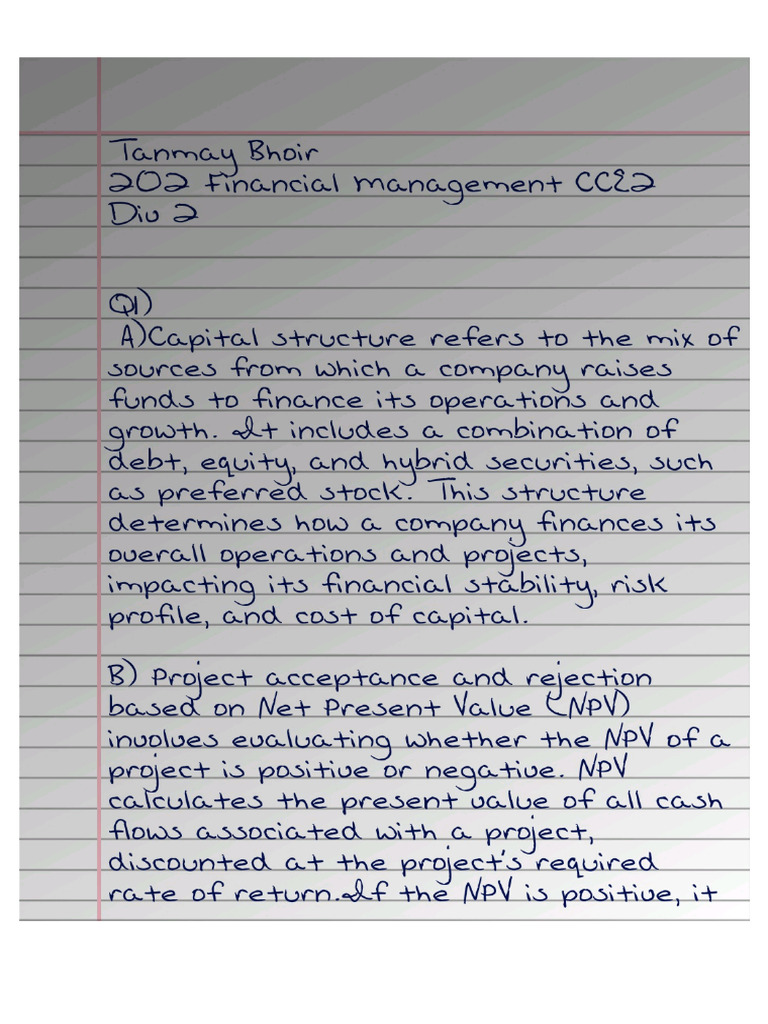 Tanmay Bhoir
202 Financial management CCE2
Div 2
Q1)
A)Capital structure refers to the mix of
sources from which a company raises
funds to finance its operations and
growth. It includes a combination of
debt, equity, and hybrid securities, such
as preferred stock. This structure
determines how a company finances its
overall operations and projects,
impacting its financial stability, risk
profile, and cost of capital.
B) Project acceptance and rejection
based on Net Present Value (NPV)
involves evaluating whether the NPV of a
project is positive or negative. NPV
calculates the present value of all cash
flows associated with a project,
discounted at the project's required
rate of return.If the NPV is positive, it